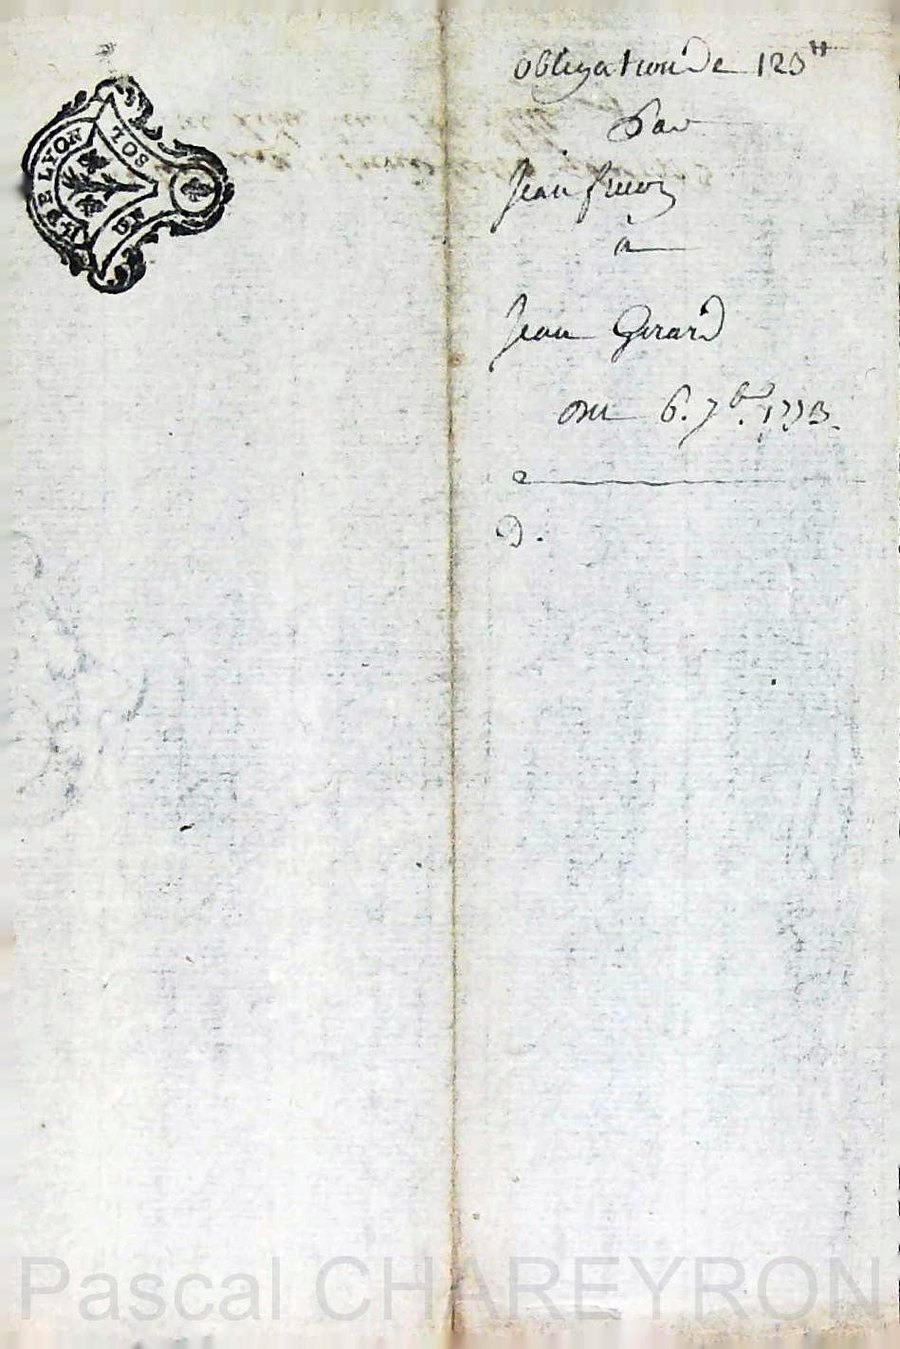 G. DE LYON
UN SOL
obligation de 120^tt
Par
Jean
à
Jean Girard
Du 6. 7^bre. 1773.
D.
Pascal CHAREYRON